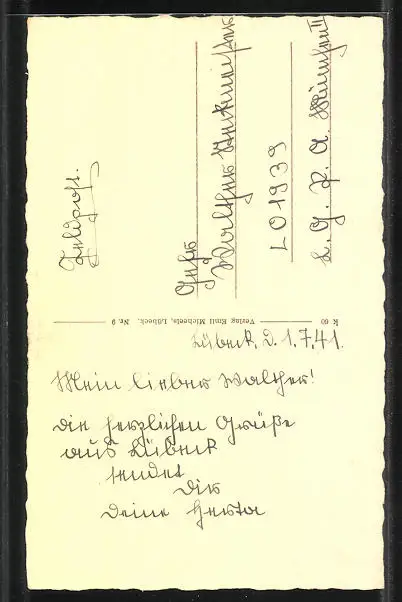 Feldpost.
Gefr.
Walther
L 01939
L. G. P. A. München II
K 60
Verlag Emil Micheels, Lübeck. Nr. 9
Lübeck, d. 1.7.41.
Mein lieber Walther!
Die herzlichen Grüße
aus Lübeck
sendet
Dir
Deine Herta